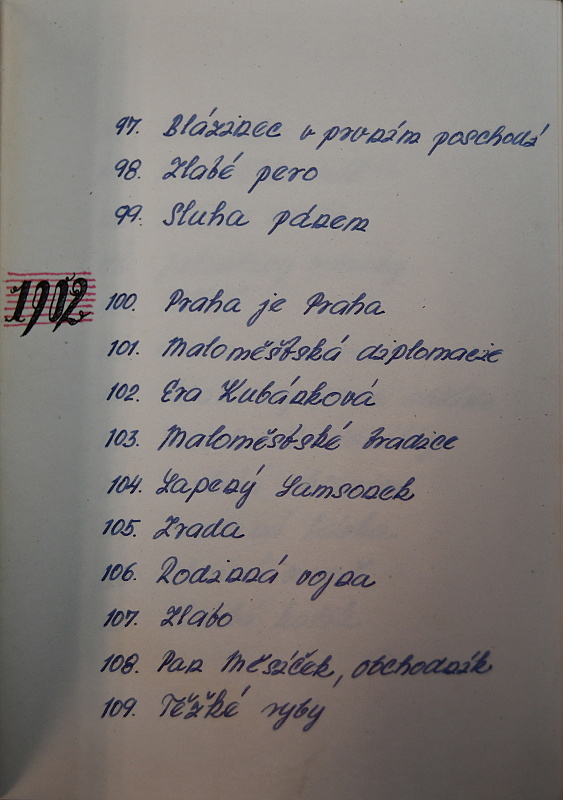 97. Blázinec v prvním poschodí
98. Zlaté pero
99. Sluha pánem
1912
100. Praha je Praha
101. Maloměstská diplomacie
102. Eva Kubánková
103. Maloměstské tradice
104. Lapený Samsonek
105. Zrada
106. Rodinná vojna
107. Zlato
108. Pan Měsíček, obchodník
109. Těžké ryby